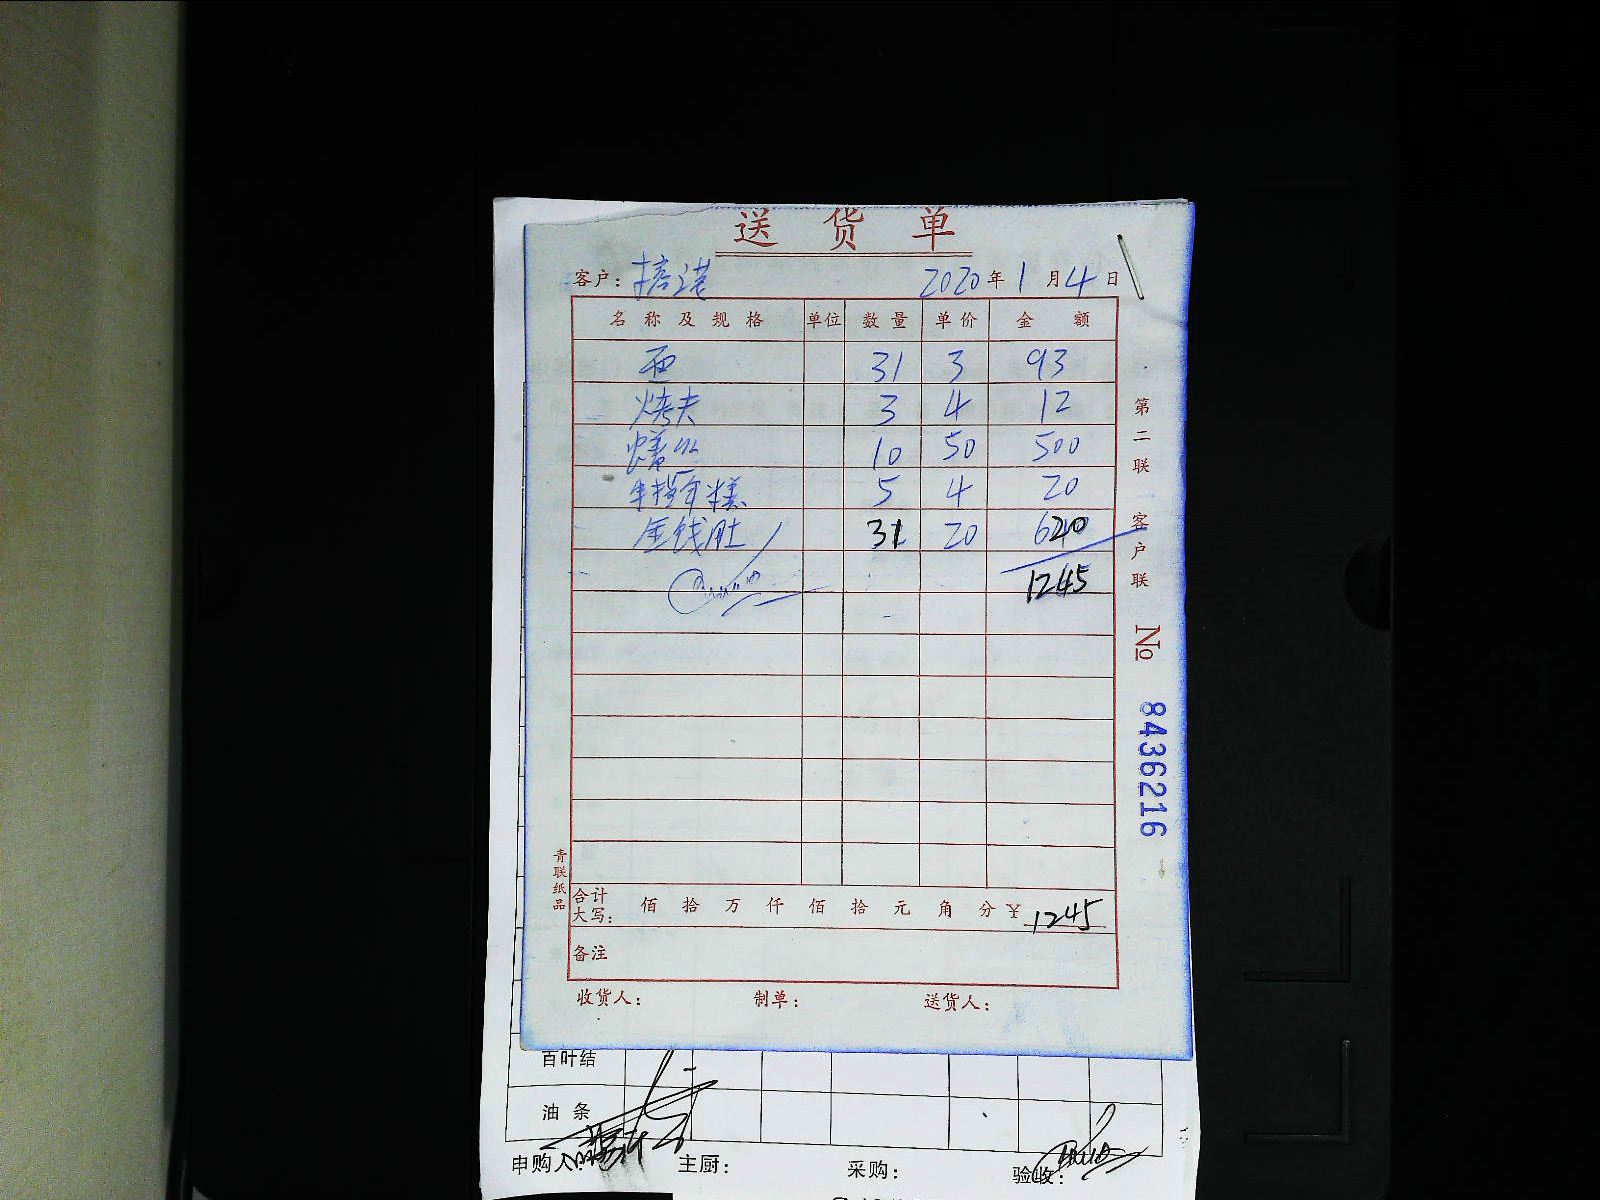 送货单
客户： 2020年1月4日
名称及规格 单位 数量 单价 金额
31 3 93
烤夫 3 4 12
10 50 500
手指年糕 5 4 20
金钱肚 31 20 620
1245
合计大写： 佰 拾 万 仟 佰 拾 元 角 分 ￥ 1245
备注
收货人： 制单： 送货人：
第二联 客户联 № 8436216
青联纸品
百叶结
油条
申购人： 主厨： 采购： 验收：